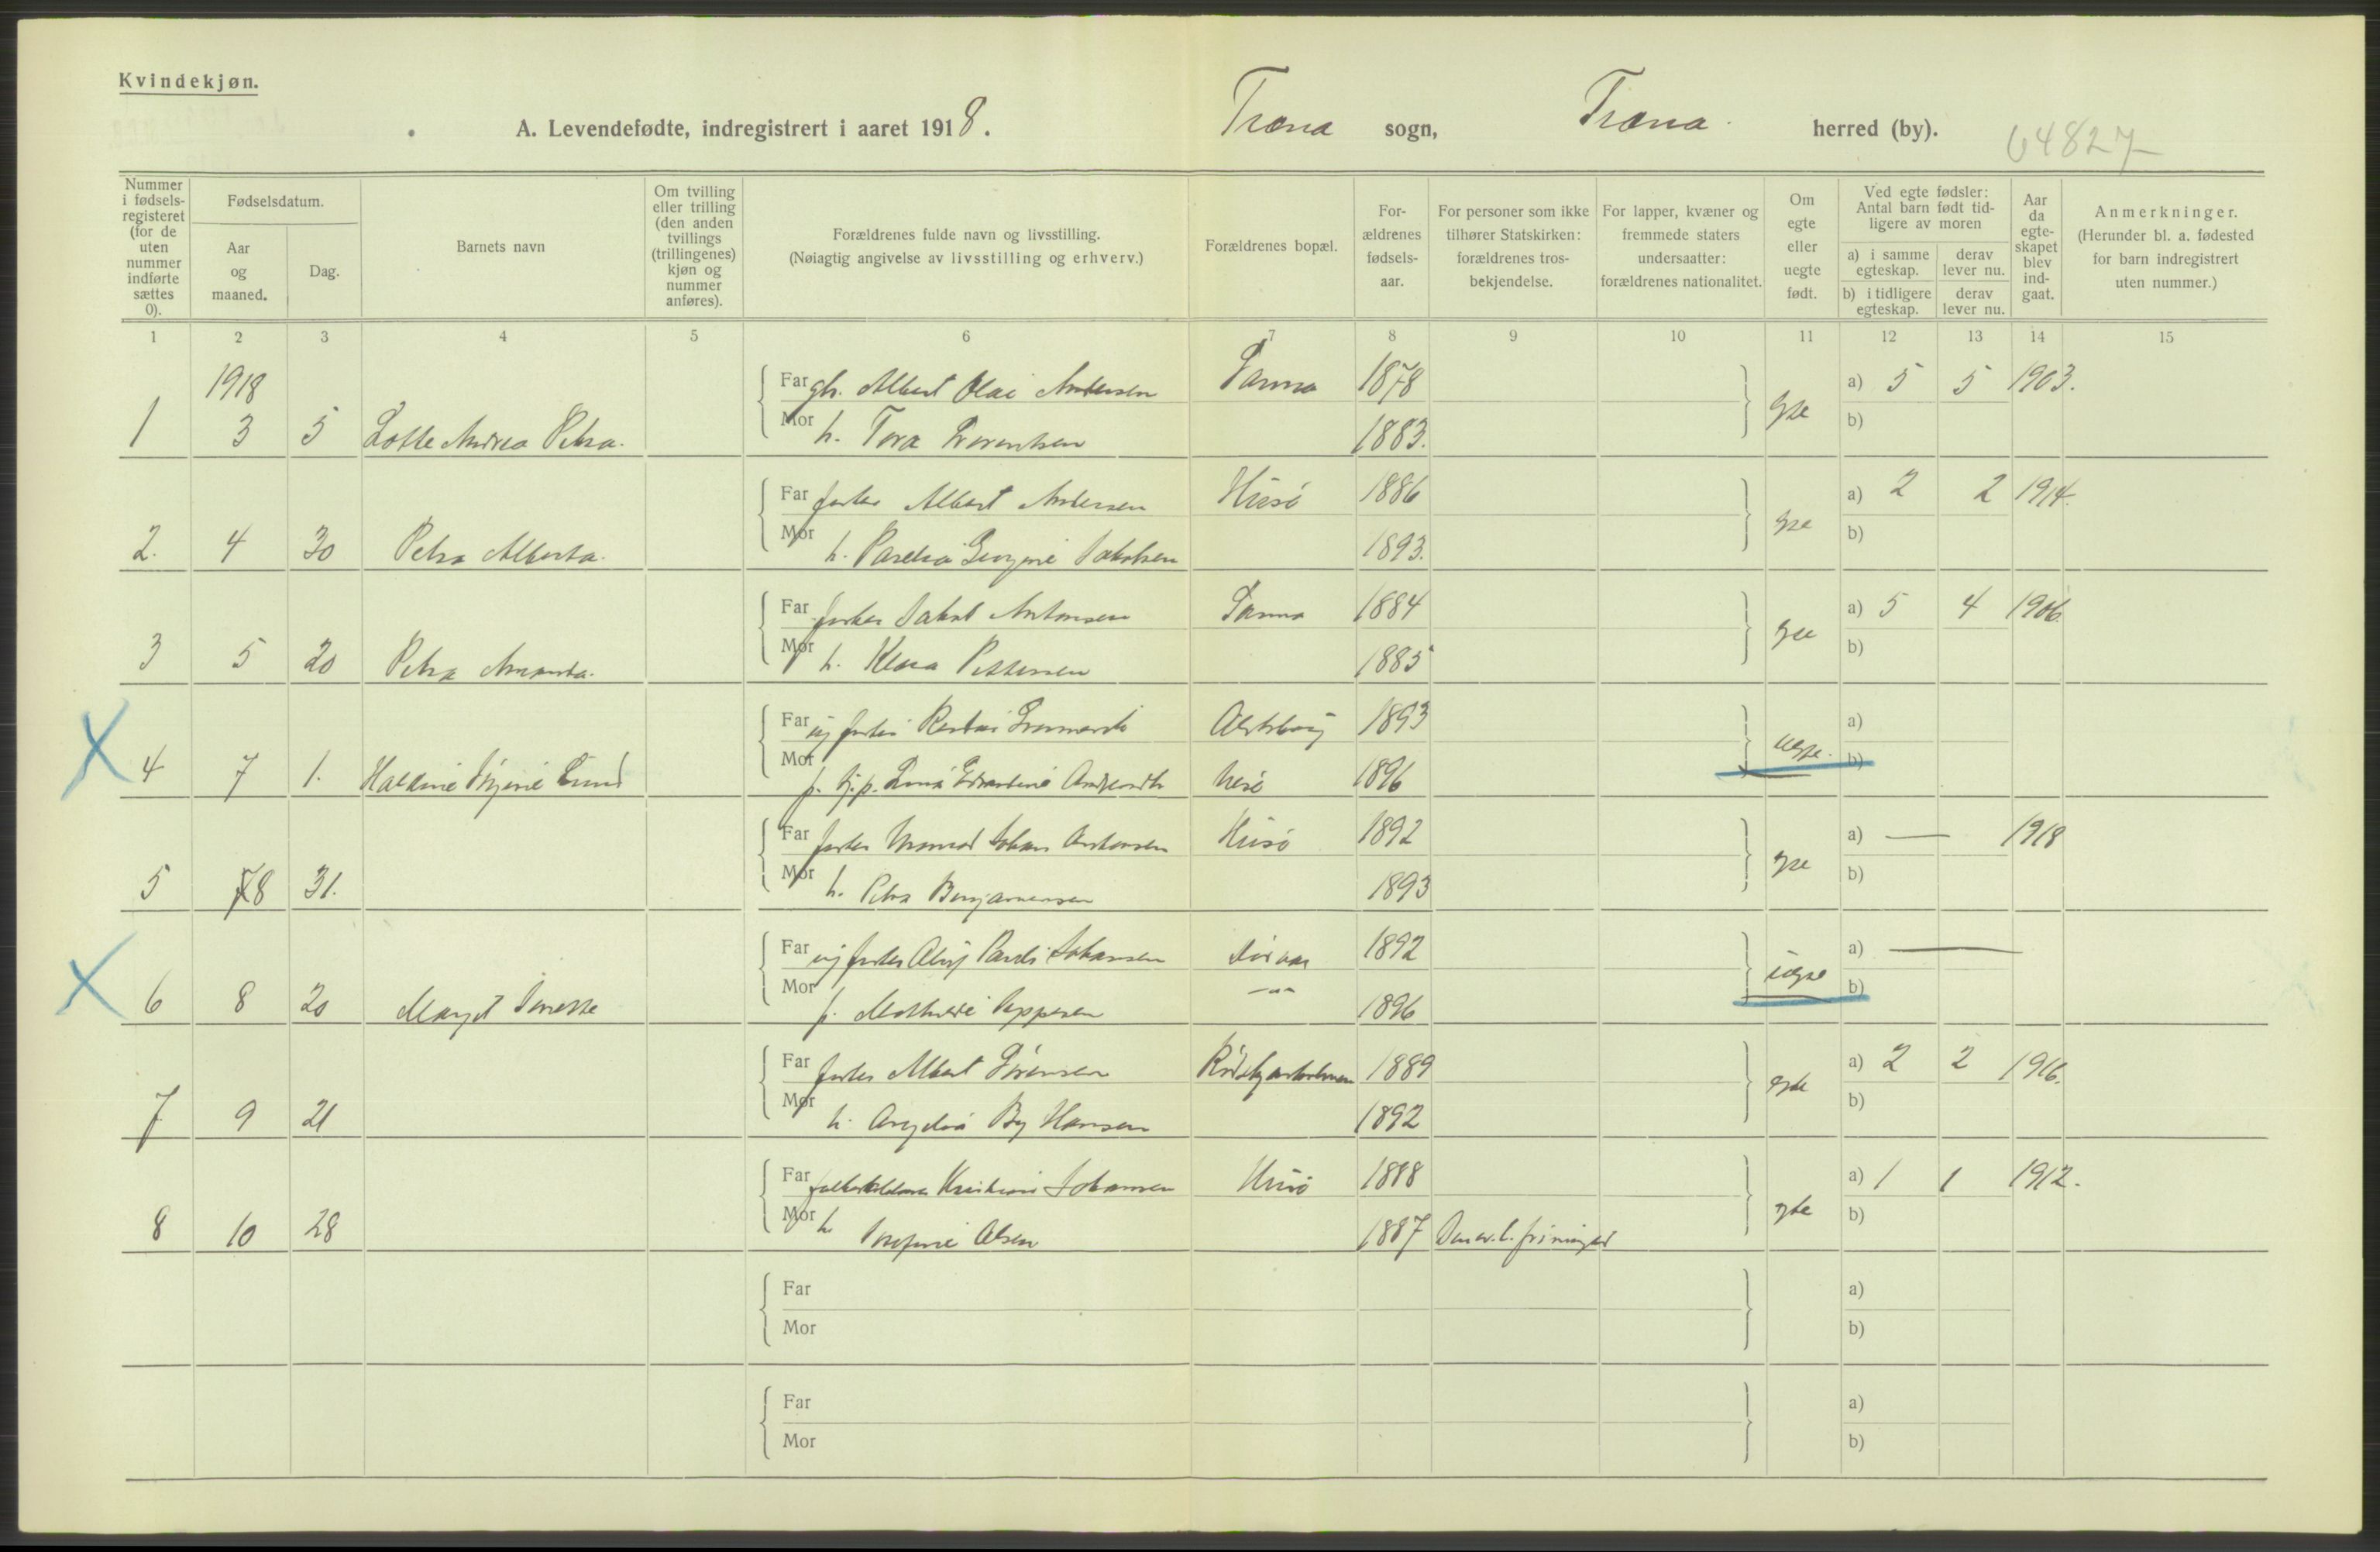 Kvindekjøn.
A. Levendefødte, indregistrert i aaret 1918. Træna sogn, Træna herred (by). 64827
Nummer i fødsels-registeret (for de uten nummer indførte sættes 0).
Fødselsdatum.
Aar og maaned.
Dag.
Barnets navn
Om tvilling eller trilling (den anden tvillings (trillingenes) kjøn og nummer anføres).
Forældrenes fulde navn og livsstilling.
(Nøiagtig angivelse av livsstilling og erhverv.)
Forældrenes bopæl.
For-ældrenes fødsels-aar.
For personer som ikke tilhører Statskirken: forældrenes tros-bekjendelse.
For lapper, kvæner og fremmede staters undersaatter: forældrenes nationalitet.
Om egte eller uegte født.
Ved egte fødsler: Antal barn født tid-ligere av moren
a) i samme egteskap.
derav lever nu.
b) i tidligere egteskap.
derav lever nu.
Aar da egte-skapet blev ind-gaat.
Anmerkninger.
(Herunder bl. a. fødested for barn indregistrert uten nummer.)
1 2 3 4 5 6 7 8 9 10 11 12 13 14 15
1918
Far Albert Olai Andersen Sanna 1878 a) 5 5 1903.
1 3 5 Lotte Andrea Petra. Mor h. Tora 1883. egte b)
Far fisker Albert Andersen Husö 1886 a) 2 2 1914.
2. 4 30 Petra Alberta. Mor h. Jakobsen 1893. egte b)
Far fisker Jakob Antonsen Sanna 1884 a) 5 4 1906.
3 5 20 Petra Amanda. Mor h. Klara Pettersen 1885 egte b)
X Far ug fisker 1893 a)
4 7 1. Lund Mor p. Husö 1896 uegte. b)
Far fisker Johan Antonsen Husö 1892 a) — 1918
5 8 31. Mor h. Petra Benjaminsen 1893 egte b)
X Far ug fisker Johansen 1892 a) —
6 8 20 Margit Mor p. Jeppesen -"- 1896 uegte b)
Far fisker Albert Sörensen 1889 a) 2 2 1916.
7 9 21 Mor h. Hansen 1892 egte b)
Far Kristian Johansen Husö 1888 a) 1 1 1912.
8 10 28 Mor h. Olsen 1887 egte b)
Far a)
Mor b)
Far a)
Mor b)